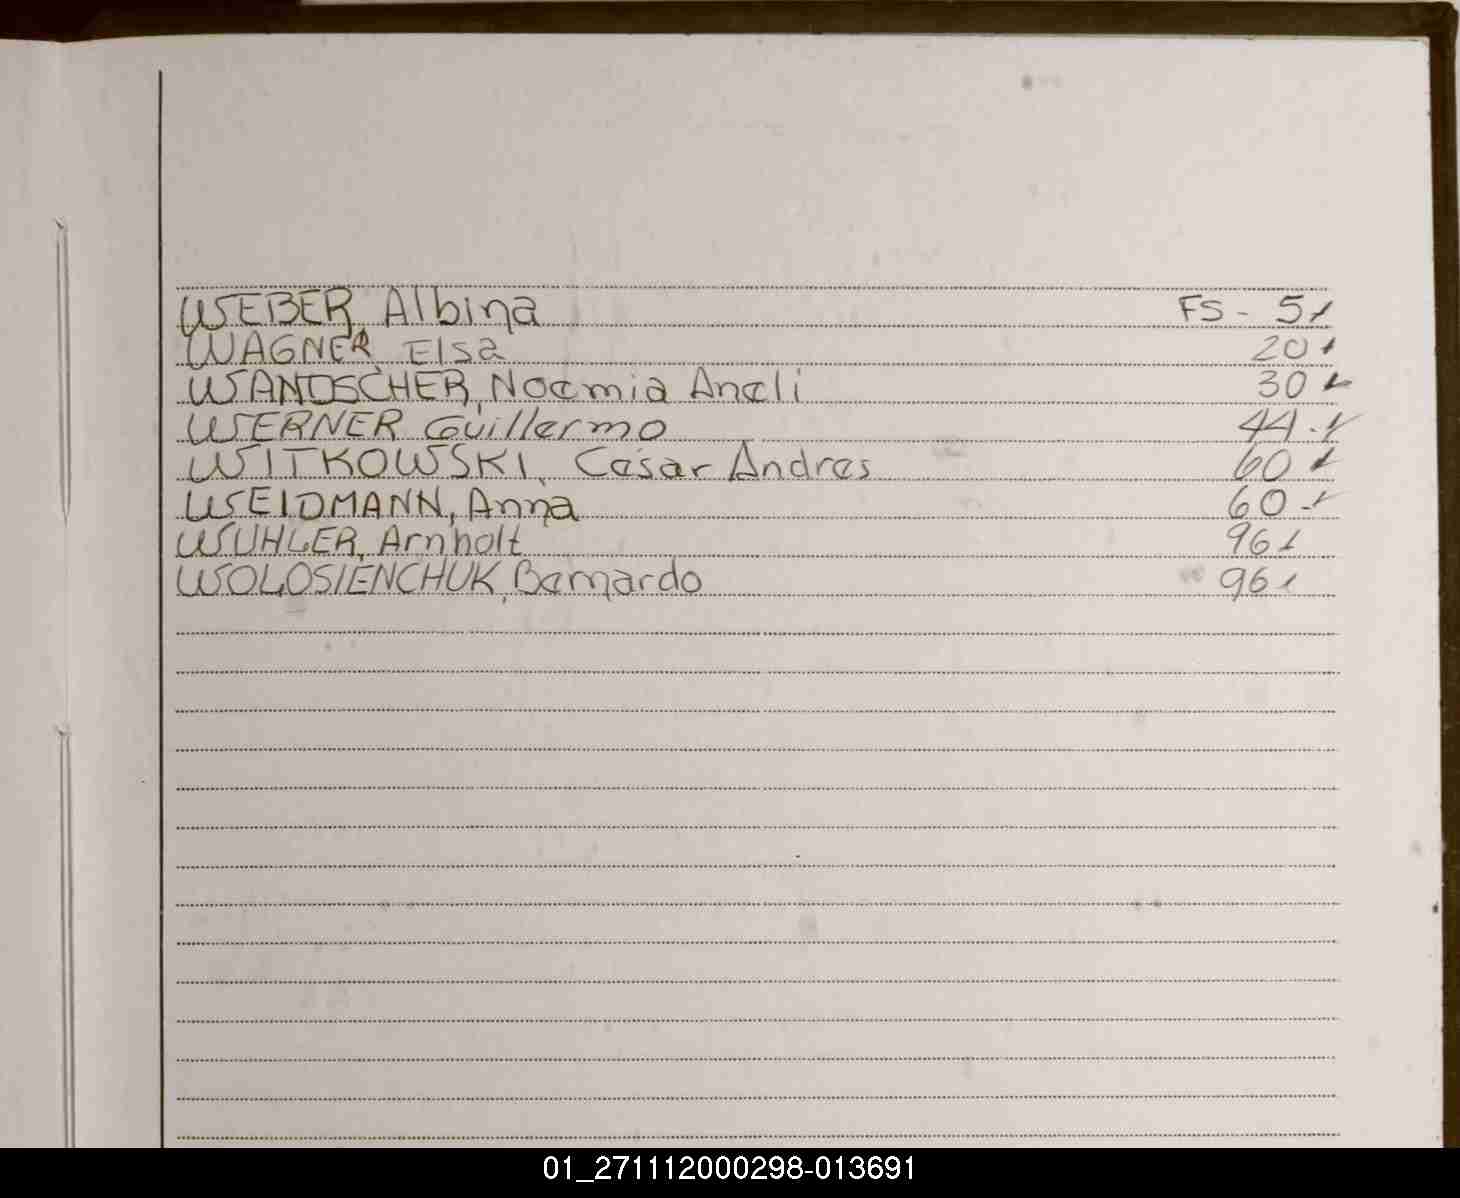 WEBER, Albina FS - 5
WAGNER, Elsa 20
WANDSCHER, Noemia Aneli 30
WERNER Guillermo 44.
WITKOWSKI, Cesar Andres 60
WEIDMANN, Anna 60
WUHLER, Arnholt 96
WOLOSIENCHUK, Bernardo 96
01_271112000298-013691